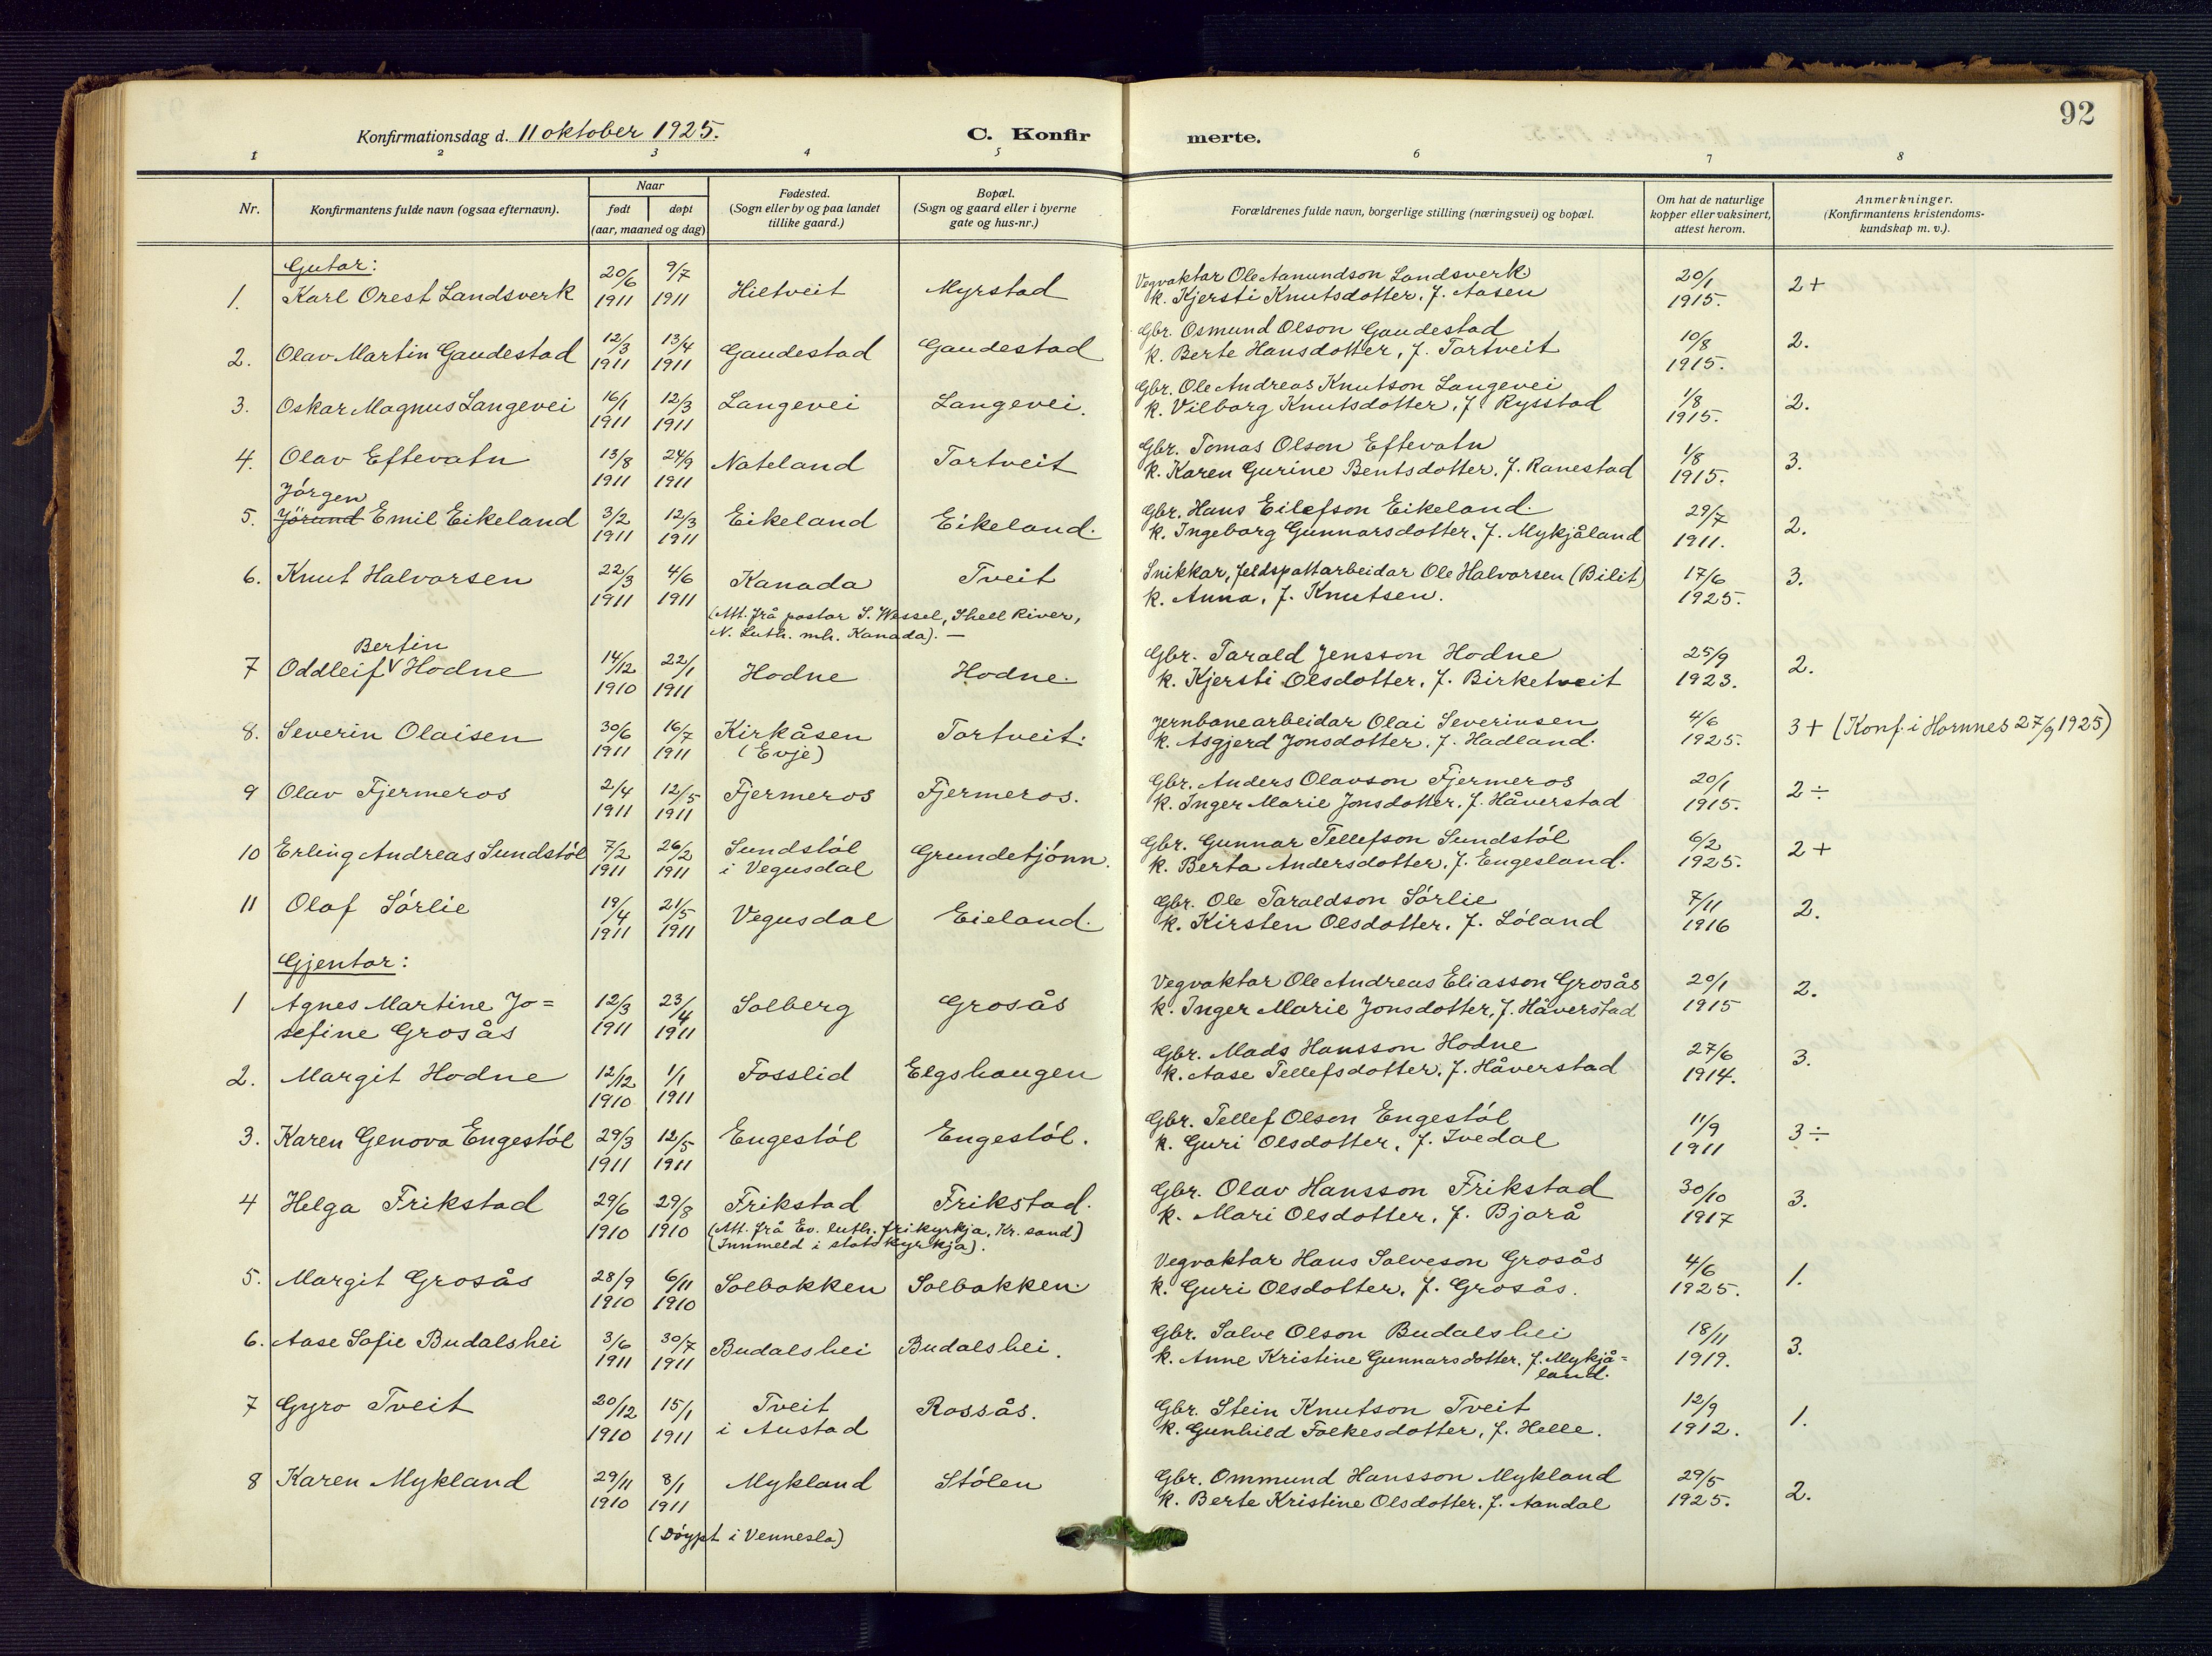 92
Konfirmationsdag d. 11 oktober 1925.
C. Konfirmerte.
1 2 3 4 5 6 7 8
Nr.
Konfirmantens fulde navn (ogsaa efternavn).
Naar
født
døpt
(aar, maaned og dag)
Fødested.
(Sogn eller by og paa landet
tillike gaard.)
Bopæl.
(Sogn og gaard eller i byerne
gate og hus-nr.)
Forældrenes fulde navn, borgerlige stilling (næringsvei) og bopæl.
Om hat de naturlige
kopper eller vaksinert,
attest herom.
Anmerkninger.
(Konfirmantens kristendoms-
kundskap m. v.).
Gutar:
1. Karl Orest Landsverk 20/6 1911 9/7 1911 Hiltveit Myrstad
Vegvaktar Ole Aanundson Landsverk
k. Kjersti Knutsdotter, f. Aasen 20/1 1915. 2+
2. Olav Martin Gaudestad 12/3 1911 13/4 1911 Gaudestad Gaudestad
Gbr. Osmund Olson Gaudestad
k. Berte Hansdotter, f. Tortveit 10/8 1915. 2.
3. Oskar Magnus Langevei 16/1 1911 12/3 1911 Langevei Langevei.
Gbr. Ole Andreas Knutson Langevei
k. Vilborg Knutsdotter, f. Rysstad 1/8 1915. 2.
4. Olav Eftevatn 13/8 1911 24/9 1911 Nateland Tortveit
Gbr. Tomas Olson Eftevatn
k. Karen Gurine Bentsdotter, f. Ranestad 1/8 1915. 3.
Jórgen
5. Jörund Emil Eikeland 3/2 1911 12/3 1911 Eikeland Eikeland.
Gbr. Hans Eilefson Eikeland.
k. Ingeborg Gunnarsdotter, f. Mykjåland 29/7 1911. 2.
6. Knut Halvorsen 22/3 1911 4/6 1911 Kanada Tveit
Snikkar, feldspattarbeidar Ole Halvorsen (Bilit)
k. Anna, f. Knutsen. 17/6 1925. 3.
(Att. frå pastor S. Wessel, Shell River,
N. Luth. mh. Kanada). —
Bertin
7 Oddleif V Hodne 14/12 1910 22/1 1911 Hodne Hodne.
Gbr. Tarald Jensson Hodne
k. Kjersti Olsdotter, f. Birketveit 25/9 1923. 2.
8. Severin Olaisen 30/6 1911 16/7 1911 Kirkåsen (Evje) Tortveit.
Jernbanearbeidar Olai Severinsen
k. Asgjerd Jonsdotter, f. Hadland. 4/6 1925. 3+ (Konf. i Hornnes 27/9 1925)
9 Olav Fjermeros 2/4 1911 12/5 1911 Fjermeros Fjermeros.
Gbr. Anders Olavson Fjermeros
k. Inger Marie Jonsdotter, f. Håverstad 20/1 1915. 2÷
10 Erling Andreas Sundstól 7/2 1911 26/2 1911 Sundstól i Vegusdal Grundetjónn.
Gbr. Gunnar Tellefson Sundstól
k. Berta Andersdotter, f. Engesland. 6/2 1925. 2+
11 Olaf Sórlie 19/4 1911 21/5 1911 Vegusdal Eieland.
Gbr. Ole Taraldson Sórlie
k. Kirsten Olsdotter, f. Lóland 7/11 1916 2.
Gjentor:
1 Agnes Martine Jo=
sefine Grosås 12/3 1911 23/4 1911 Solberg Grosås
Vegvaktar Ole Andreas Eliasson Grosås
k. Inger Marie Jonsdotter, f. Håverstad 20/1 1915 2.
2. Margit Hodne 12/12 1910 1/1 1911 Fosslid Elgshaugen
Gbr. Mads Hansson Hodne
k. Aase Tellefsdotter, f. Håverstad 27/6 1914. 3.
3. Karen Genova Engestól 29/3 1911 12/5 1911 Engestól Engestól.
Gbr. Tellef Olson Engestól
k. Guri Olsdotter, f. Ivedal 11/9 1911 3÷
4 Helga Frikstad 29/6 1910 29/8 1910 Frikstad Frikstad.
Gbr. Olav Hansson Frikstad
k. Mari Olsdotter, f. Bjorå 30/10 1917 3.
(Att. frå Ev. luth. frikyrkja, Kr. sand)
(Innmeld i statskyrkja).
5. Margit Grosås 28/9 1910 6/11 1910 Solbakken Solbakken.
Vegvaktar Hans Salveson Grosås
k. Guri Olsdotter, f. Grosås. 4/6 1925. 1.
6. Aase Sofie Budalshei 3/6 1911 30/7 1911 Budalshei Budalshei.
Gbr. Salve Olson Budalshei
k. Anne Kristine Gunnarsdotter, f. Mykjå=
land. 18/11 1919. 3.
7 Gyro Tveit 20/12 1910 15/1 1911 Tveit i Austad Rossås.
Gbr. Stein Knutson Tveit
k. Gunhild Folkesdotter, f. Helle. 12/9 1912. 1.
8 Karen Mykland 29/11 1910 8/1 1911 Mykland Stólen
Gbr. Ommund Hansson Mykland
k. Berte Kristine Olsdotter, f. Aandal 29/5 1925. 2.
(Dóypt i Vennesla)